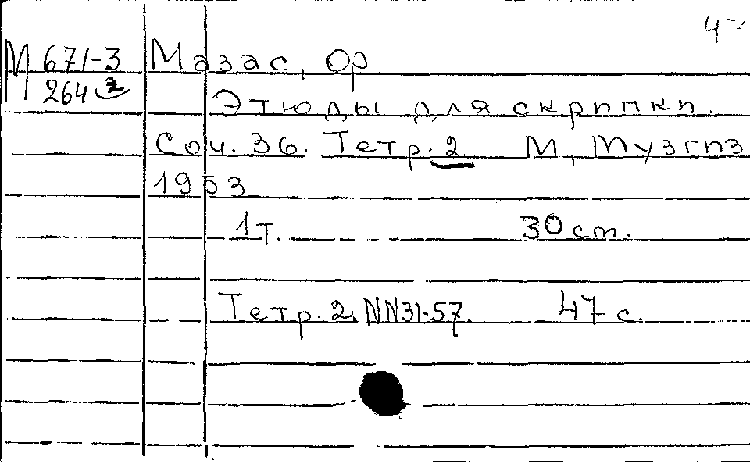 4-
М 671-3 Мазас, Ор
264 2
Этюды для скрипки.
Соч. 36. Тетр. 2 М, Музгиз
1953
1т. 30 cm.
Тетр. 2. NN31-57. 47 с.